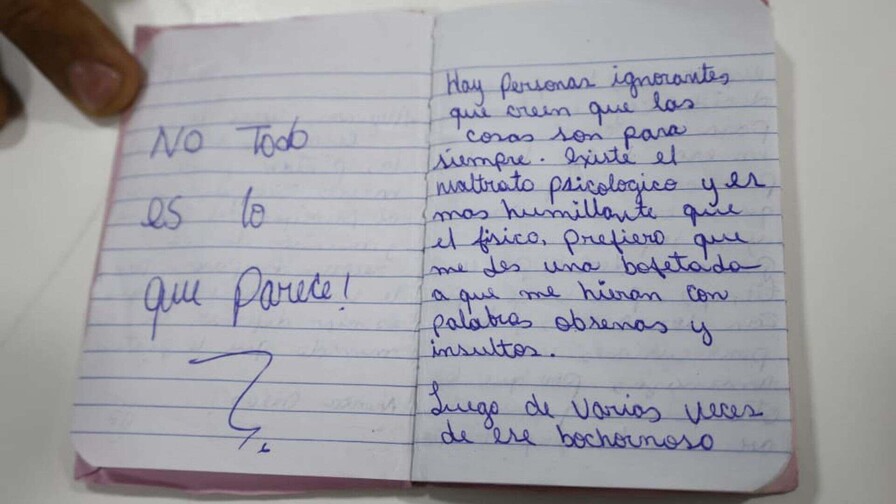 No Todo
es lo
que Parece!
Hay Personas ignorantes
que creen que las
cosas son para
siempre. existe el
maltrato psicologico y es
mas humillante que
el fisico, prefiero que
me des una bofetada
a que me hieran con
palabras obsenas y
insultos.
Luego de varias veces
de ese bochornoso